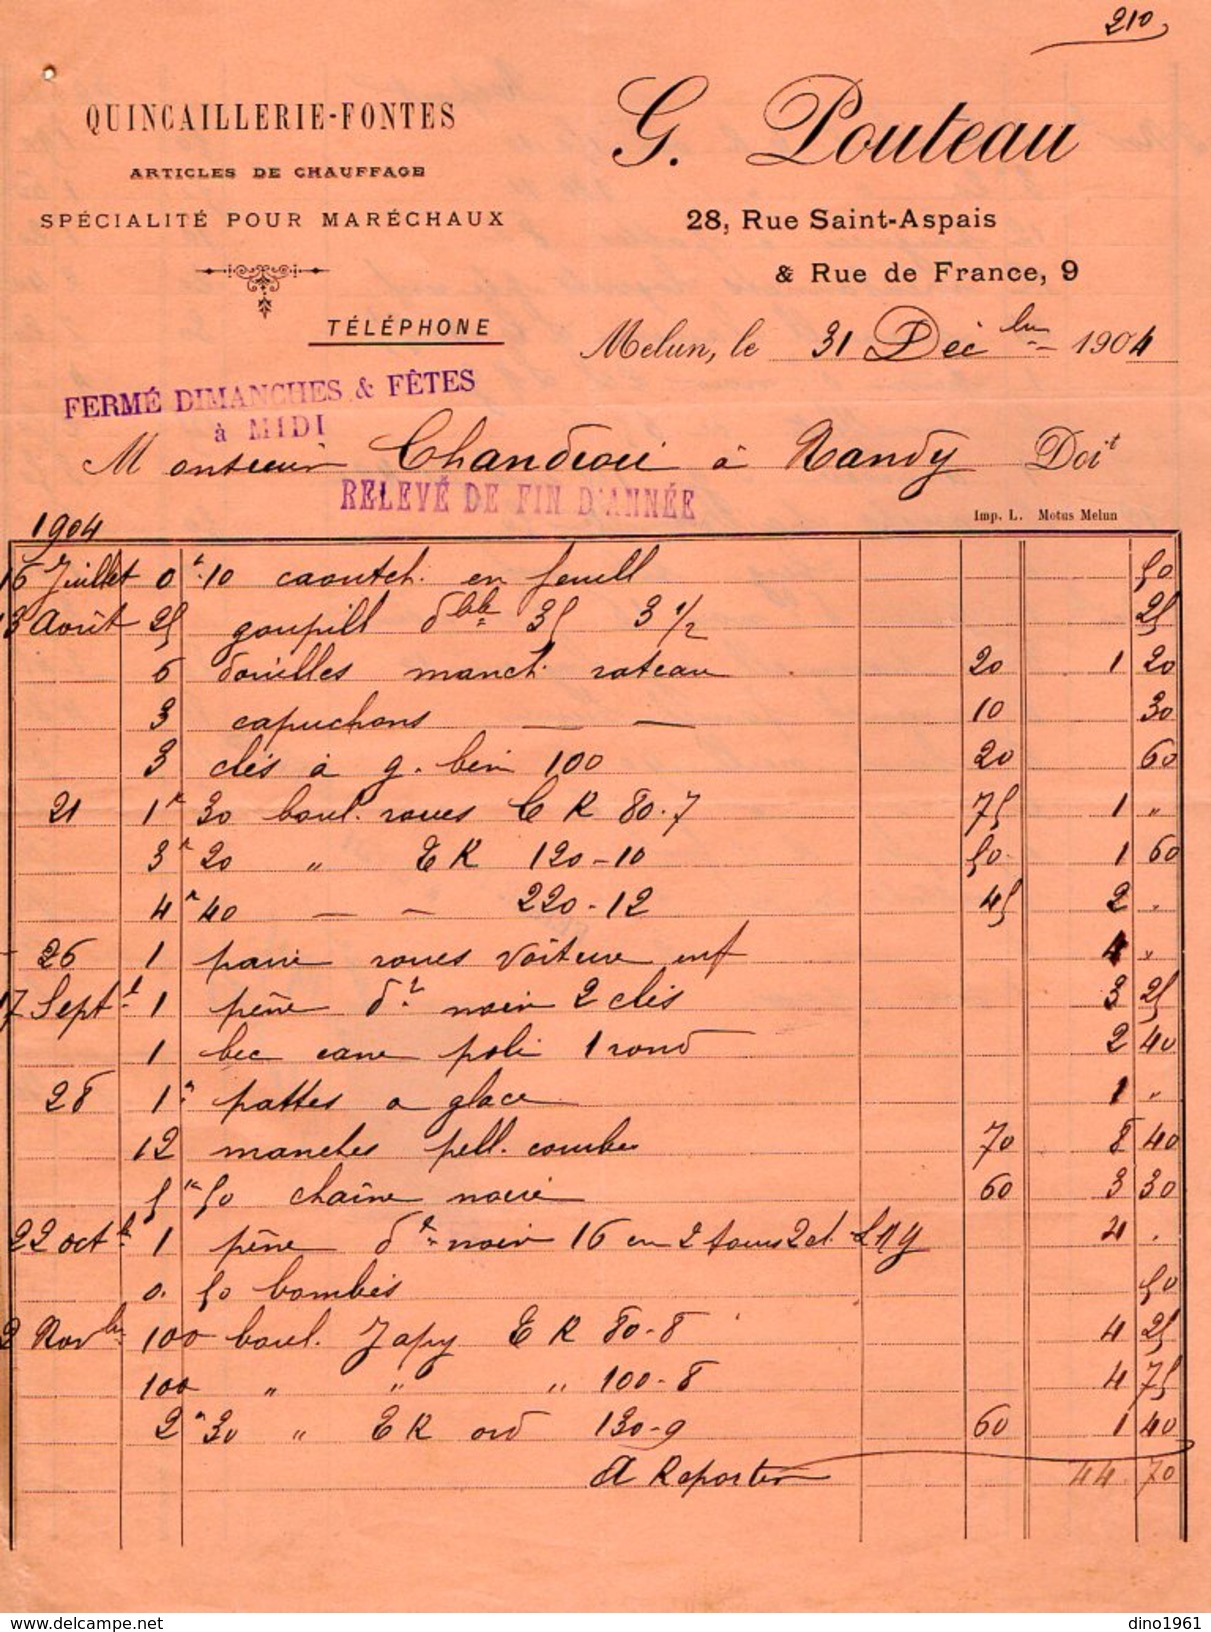 210
QUINCAILLERIE-FONTES
ARTICLES DE CHAUFFAGE
SPÉCIALITÉ POUR MARÉCHAUX
TÉLÉPHONE
G. Pouteau
28, Rue Saint-Aspais
& Rue de France, 9
Melun, le 31 Déc bre 1904
FERMÉ DIMANCHES & FÊTES
à MIDI
Monsieur à Nandy Doit
RELEVÉ DE FIN D'ANNÉE
Imp. L. Motus Melun
1904
16 Juillet 0k.10 caoutch. en feuill 50
13 Août 25 goupill dble 35 3 1/2 25
6 douilles manch. rateau 20 1 20
3 capuchons — — 10 30
3 clés à g. 100 20 60
21 1k 30 boul. roues C R 80.7 75 1 "
3k 20 " T R 120-10 50 1 60
4k 40 — — 220-12 45 2 .
26 1 paire roues voiture enf 4 "
17 Sept. 1 pêne dt noir 2 clés 3 25
1 bec cane poli 1 rond 2 40
28 1k pattes a glace 1 "
12 manches pell. courbes 70 8 40
5k 50 chaîne noire 60 3 30
22 oct 1 pêne dt noir 16 cm 2 tours 2 cl. 4 .
0. 50 bombés 50
2 Novbre 100 boul. Japy T R 80-8 4 25
100 " " " 100-8 4 75
2k 30 " T R ord 130-9 60 1 40
A Reporter 44.70
www.delcampe.net
dino1961